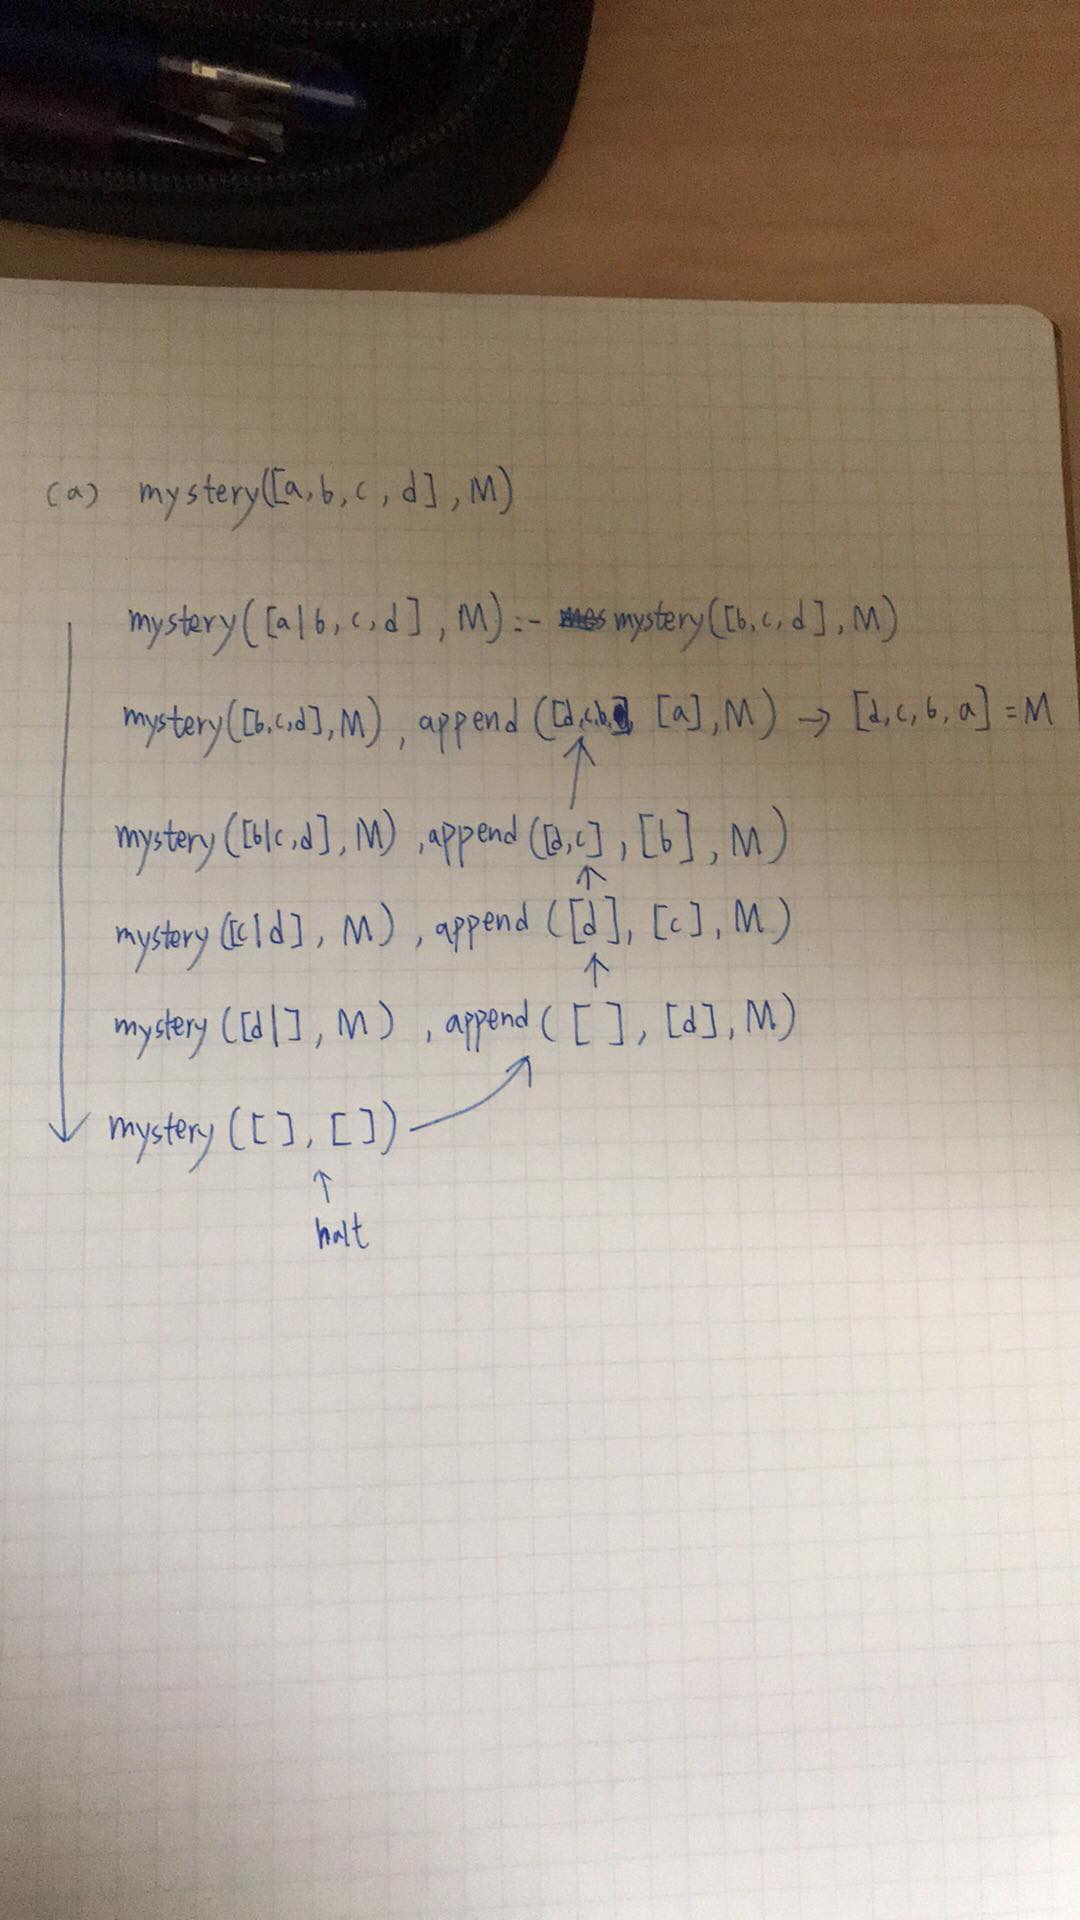 (a) mystery([a,b,c,d],M)
mystery([a|b,c,d],M):- mystery([b,c,d],M)
mystery([b,c,d],M), append([d,c,b], [a],M) → [d,c,b,a]=M
mystery([b|c,d],M), append([d,c],[b],M)
mystery([c|d],M), append([d],[c],M)
mystery([d|],M), append([ ],[d],M)
mystery([],[])
halt